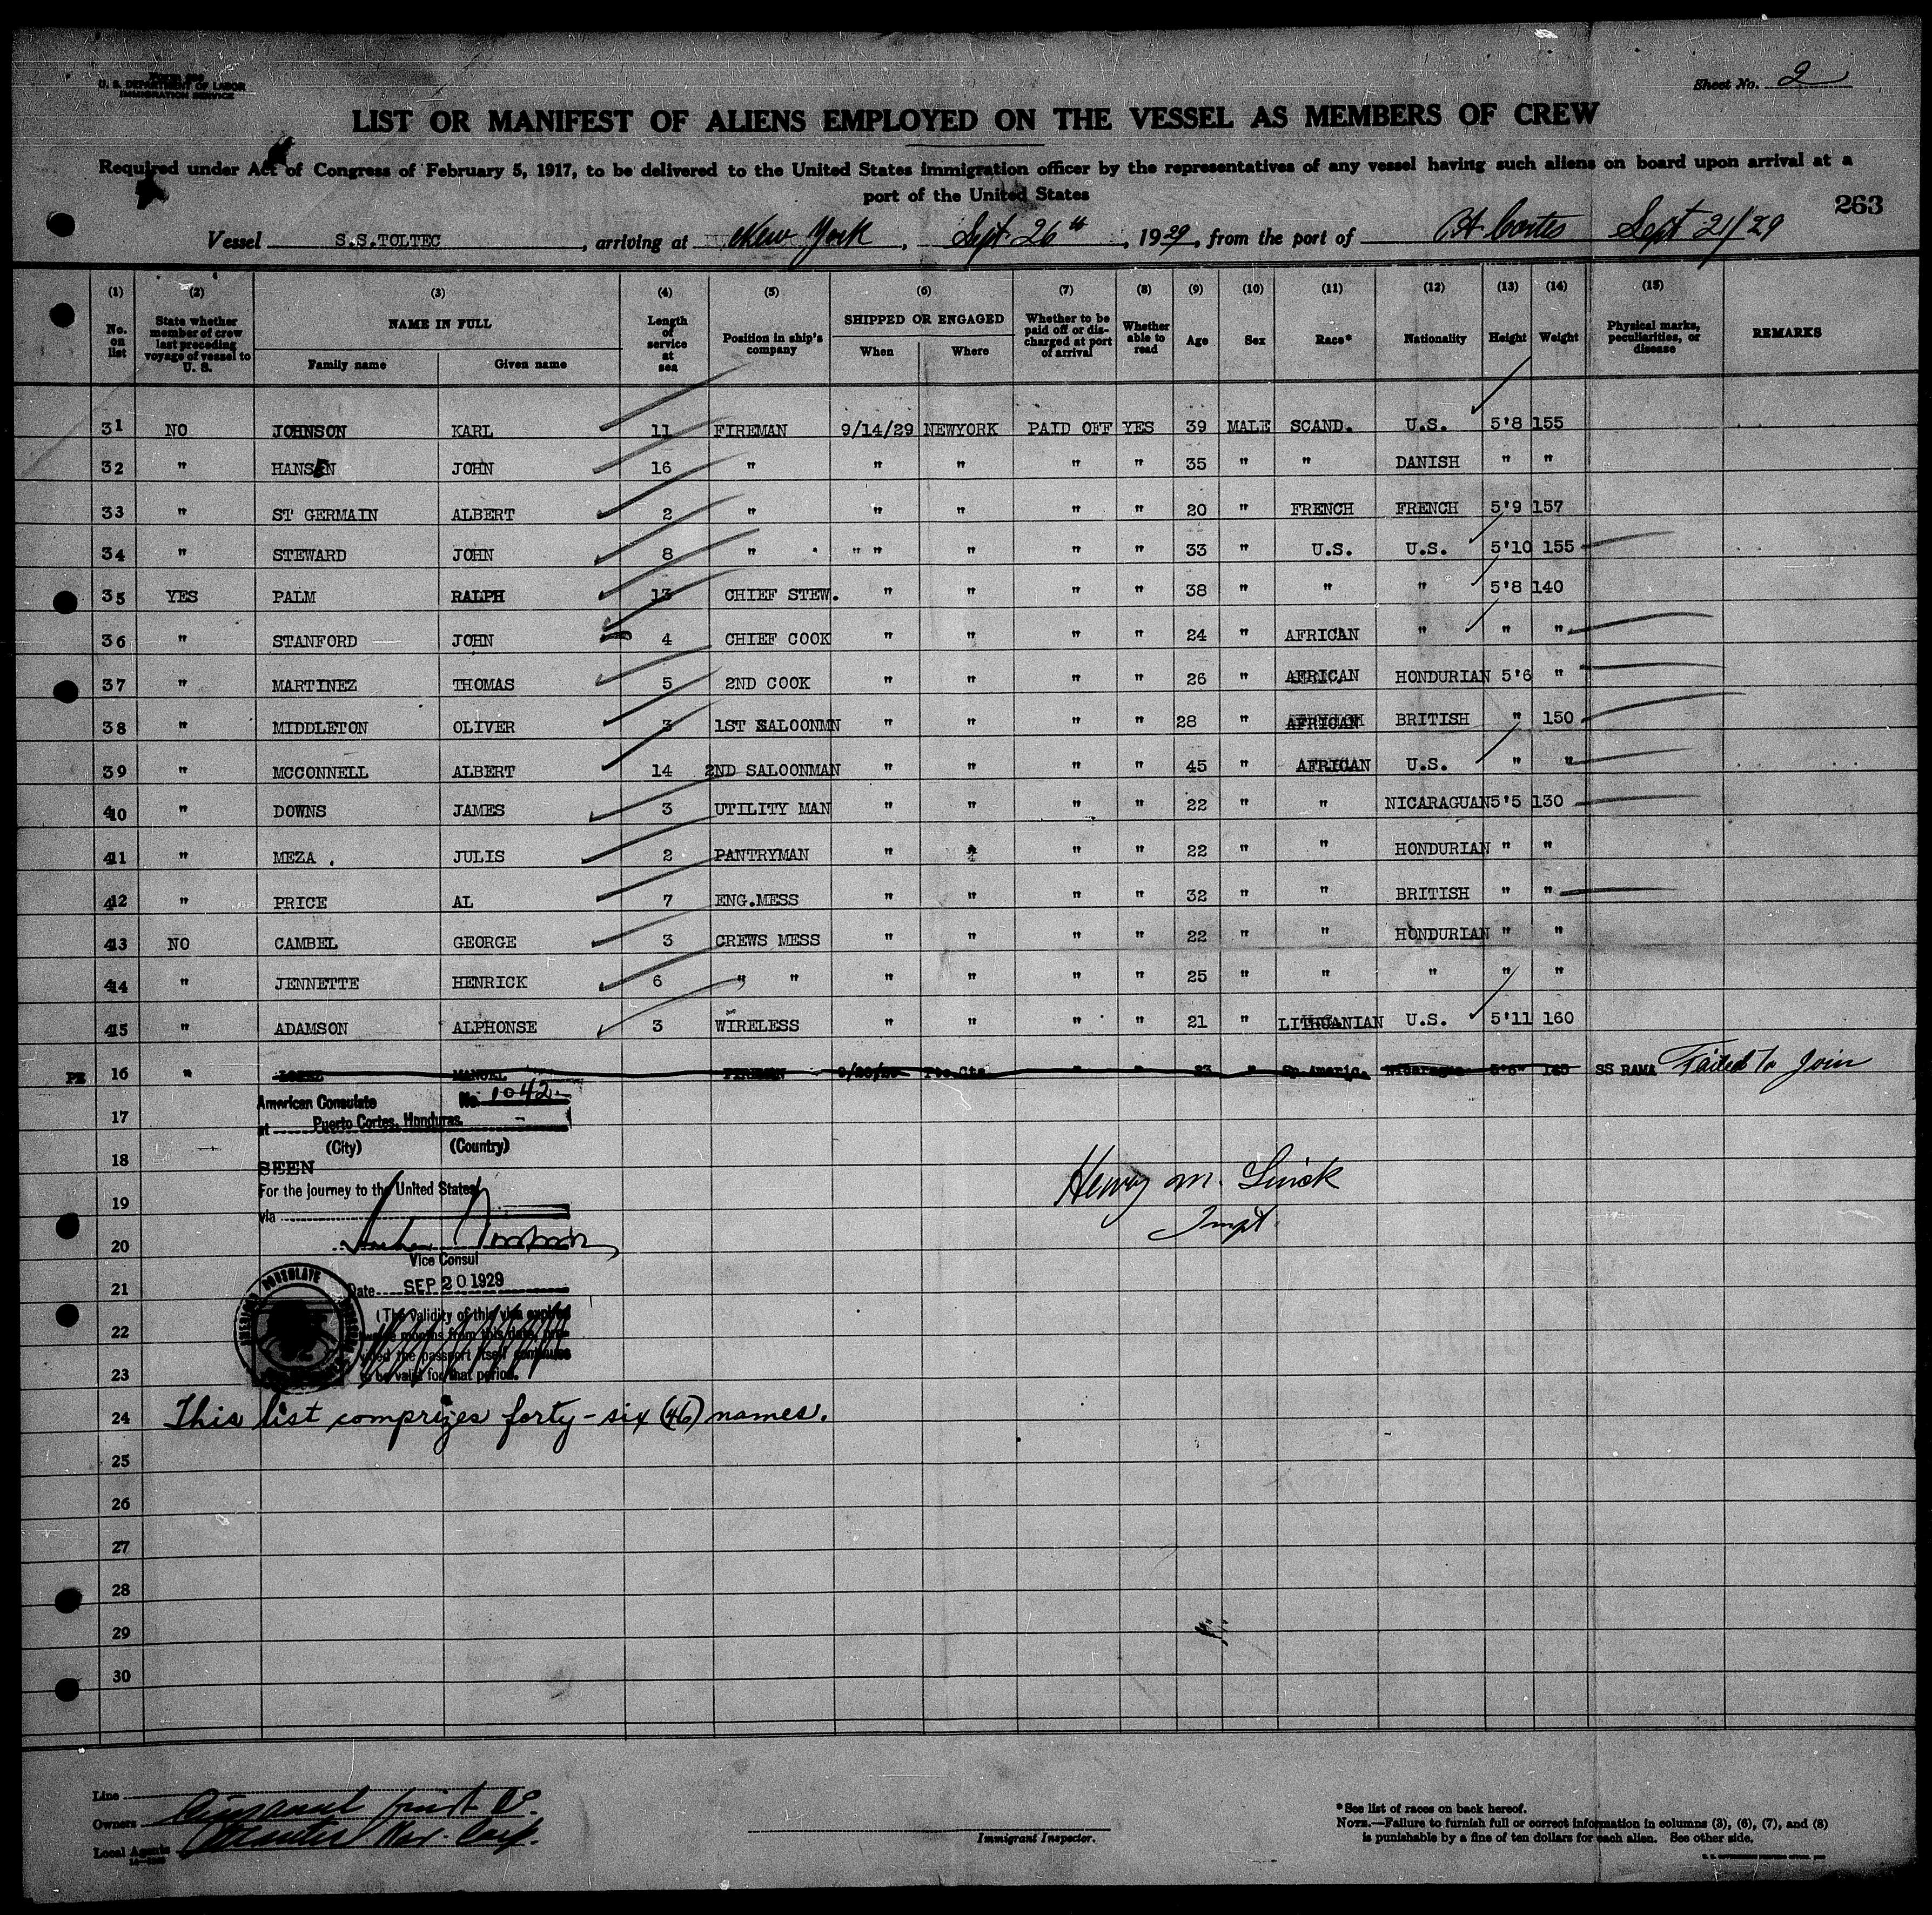 Form 689
U. S. DEPARTMENT OF LABOR
IMMIGRATION SERVICE
Sheet No. 2
LIST OR MANIFEST OF ALIENS EMPLOYED ON THE VESSEL AS MEMBERS OF CREW
Required under Act of Congress of February 5, 1917, to be delivered to the United States immigration officer by the representatives of any vessel having such aliens on board upon arrival at a
port of the United States
263
Vessel S.S.TOLTEC, arriving at New York, Sept. 26th, 1929, from the port of Pt. Cortes Sept 21/29
(1) (2) (3) (4) (5) (6) (7) (8) (9) (10) (11) (12) (13) (14) (15)
No. on list State whether member of crew last preceding voyage of vessel to U. S. NAME IN FULL Family name Given name Length of service at sea Position in ship's company SHIPPED OR ENGAGED When Where Whether to be paid off or discharged at port of arrival Whether able to read Age Sex Race* Nationality Height Weight Physical marks, peculiarities, or disease REMARKS
31 NO JOHNSON KARL 11 FIREMAN 9/14/29 NEWYORK PAID OFF YES 39 MALE SCAND. U.S. 5'8 155
32 " HANSEN JOHN 16 " " " " " 35 " " DANISH " "
33 " ST GERMAIN ALBERT 2 " " " " " 20 " FRENCH FRENCH 5'9 157
34 " STEWARD JOHN 8 " " " " " " 33 " U.S. U.S. 5'10 155
35 YES PALM RALPH 13 CHIEF STEW. " " " " 38 " " " 5'8 140
36 " STANFORD JOHN 4 CHIEF COOK " " " " 24 " AFRICAN " " "
37 " MARTINEZ THOMAS 5 2ND COOK " " " " 26 " AFRICAN HONDURIAN 5'6 "
38 " MIDDLETON OLIVER 3 1ST SALOONMN " " " " 28 " AFRICAN BRITISH " 150
39 " MCCONNELL ALBERT 14 2ND SALOONMAN " " " " 45 " AFRICAN U.S. " "
40 " DOWNS JAMES 3 UTILITY MAN " " " " 22 " " NICARAGUAN 5'5 130
41 " MEZA . JULIS 2 PANTRYMAN " " " " 22 " " HONDURIAN " "
42 " PRICE AL 7 ENG.MESS " " " " 32 " " BRITISH " "
43 NO CAMBEL GEORGE 3 CREWS MESS " " " " 22 " " HONDURIAN " "
44 " JENNETTE HENRICK 6 " " " " " " 25 " " " " "
45 " ADAMSON ALPHONSE 3 WIRELESS " " " " 21 " LITHUANIAN U.S. 5'11 160
16 " LOPEZ MANUEL FIREMAN 9/20/29 Pto.Cts. " " 23 " Sp.Americ. Nicaragua 5'6" 145 SS RAMA Failed to Join
American Consulate No. 1042
at Puerto Cortes, Honduras.
17
(City) (Country)
18
SEEN
For the journey to the United States
Henry M.
19
via
20
Vice Consul
21
Date SEP 20 1929
(The validity of this visa expires
22
twelve months from this date, provided the passport itself continues
23
to be valid for that period.
24 This list comprizes forty-six (46) names.
25
26
27
28
29
30
Line
Owners Fruit Co.
Local Agents
Immigrant Inspector.
*See list of races on back hereof.
NOTE.—Failure to furnish full or correct information in columns (3), (6), (7), and (8)
is punishable by a fine of ten dollars for each alien. See other side.